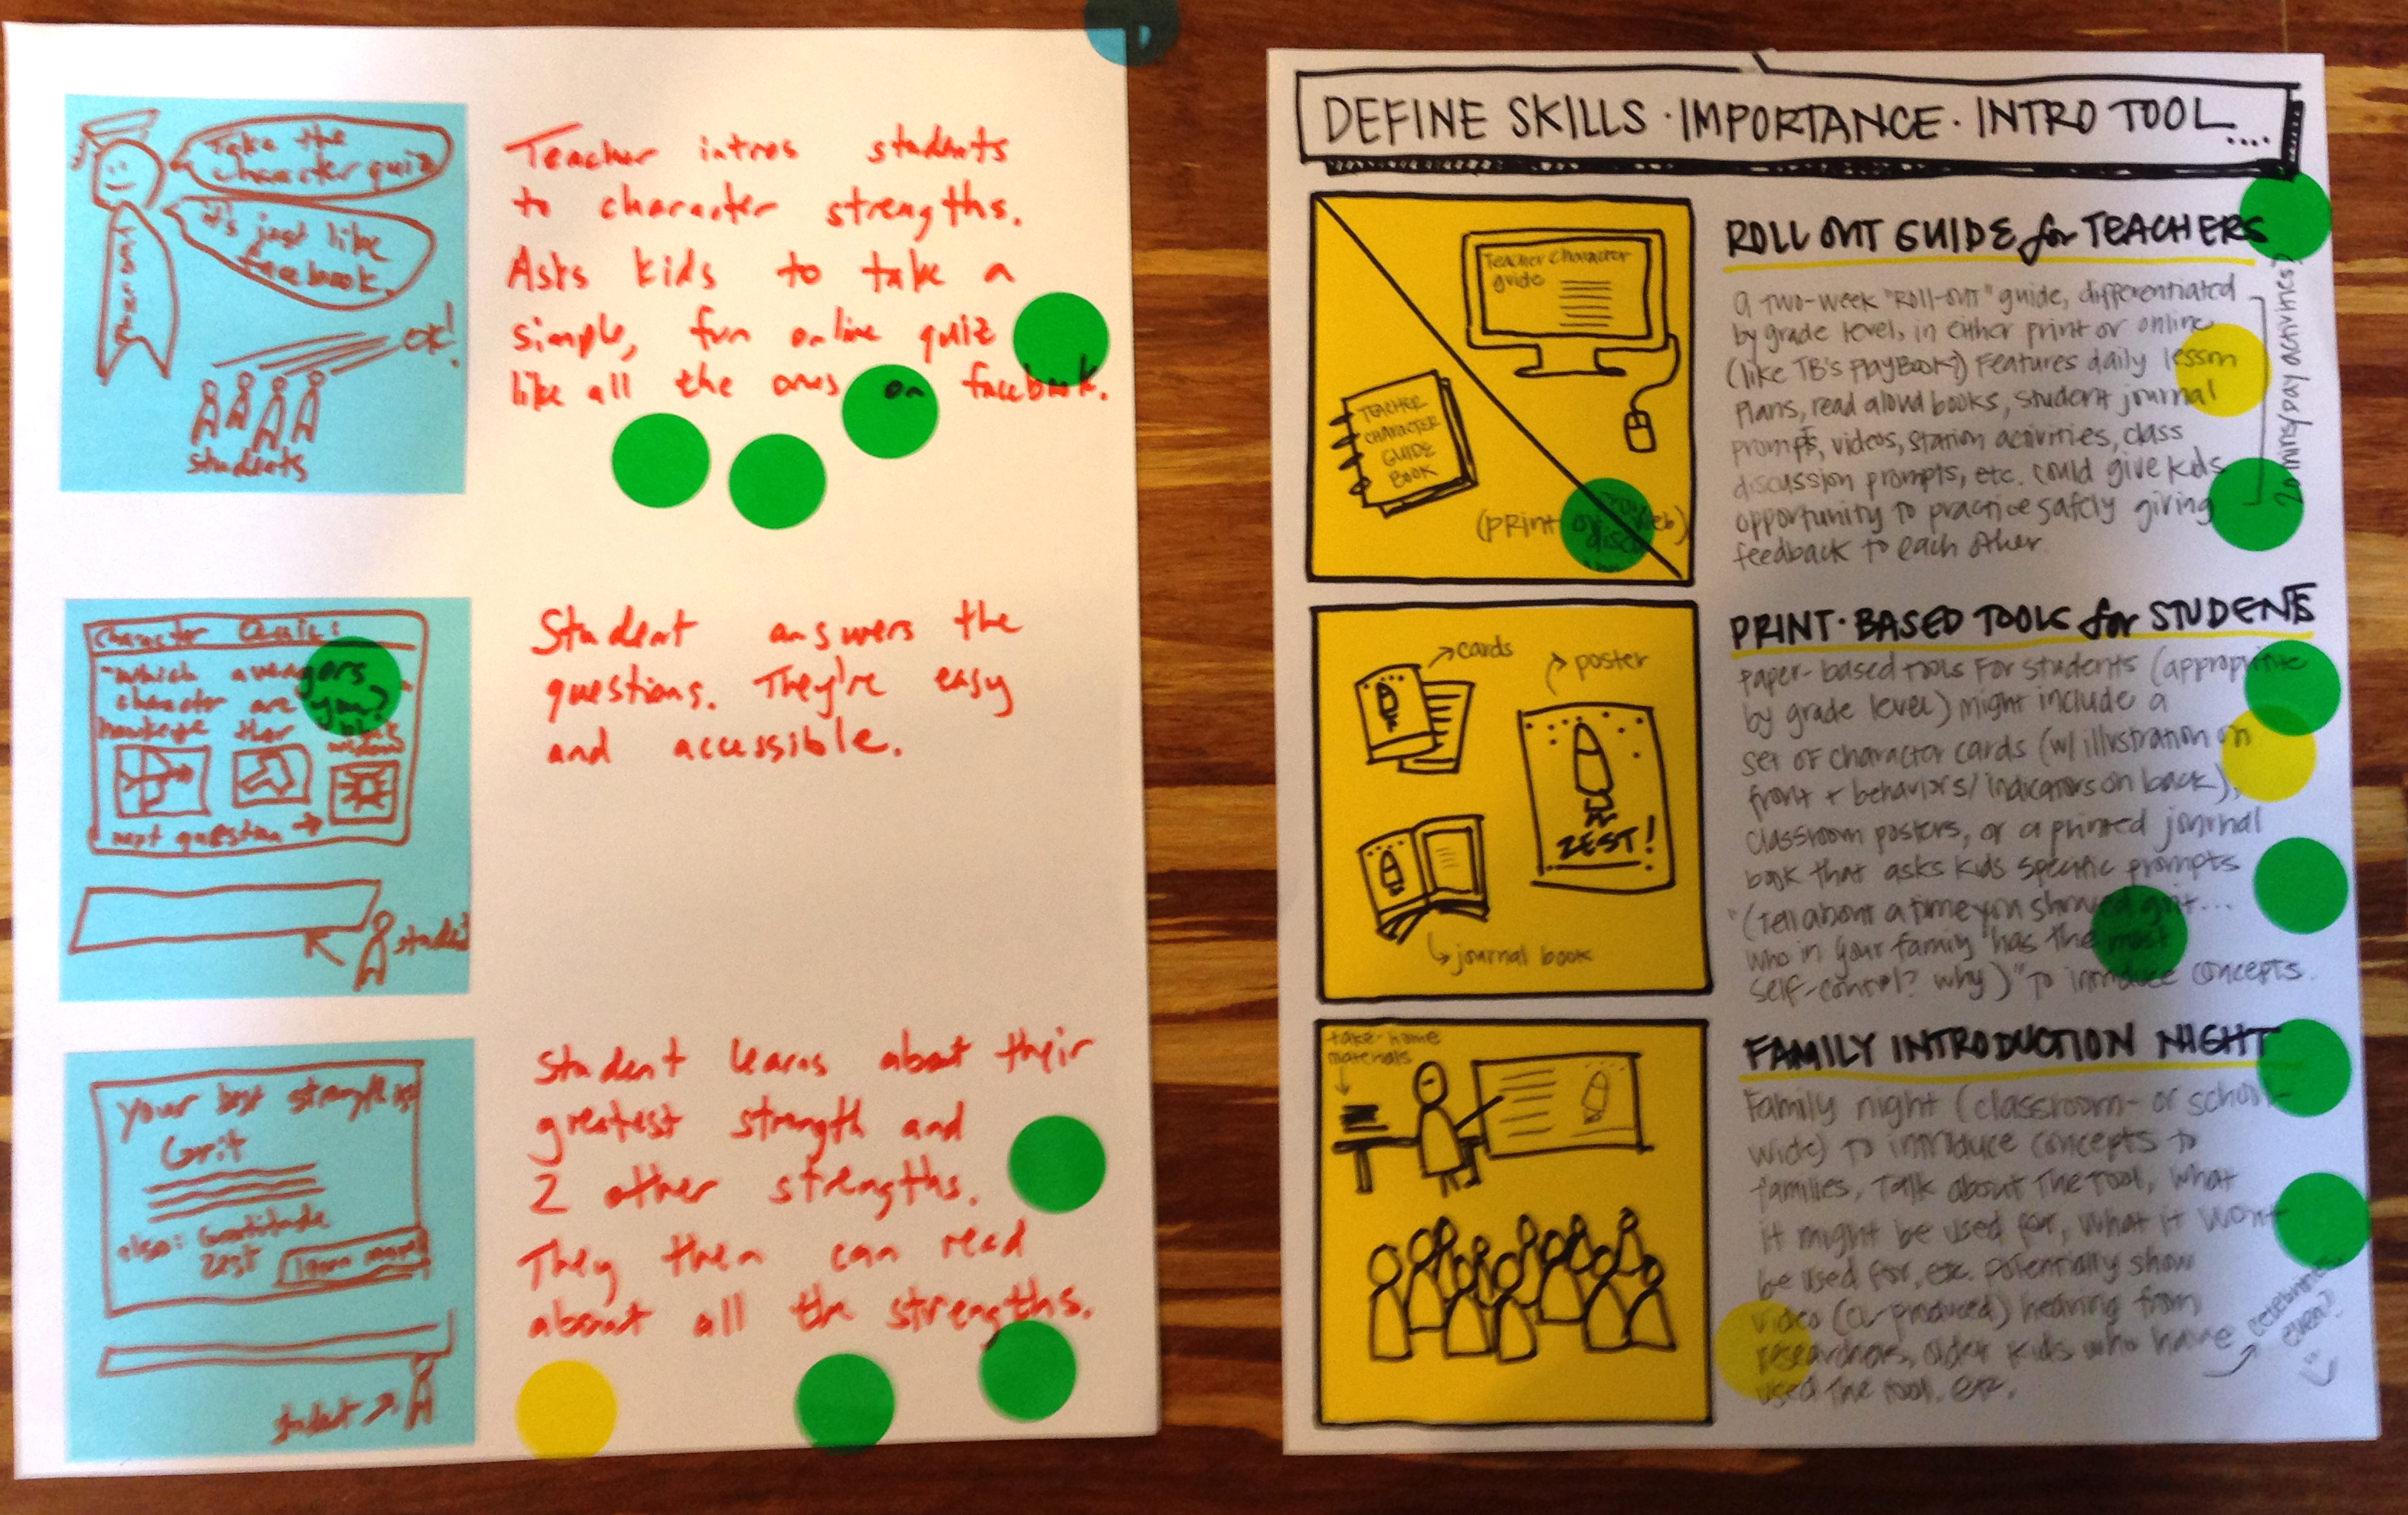 Take the
character quiz
it's just like
facebook.
OK!
students
Teacher intros students
to character strengths.
Asks kids to take a
simple, fun online quiz
like all the ones on facebook.
Character Quiz:
"which avengers
character are you?"
hawkeye thor black
widow
next question →
student
Student answers the
questions. They're easy
and accessible.
Your best strength is:
Grit
also: Gratitude
Zest
learn more
student
Student learns about their
greatest strength and
2 other strengths.
They then can read
about all the strengths.
DEFINE SKILLS · IMPORTANCE · INTRO TOOL....
Teacher Character
guide
TEACHER
CHARACTER
GUIDE
BOOK
(print or web)
ROLL OUT GUIDE for TEACHERS
A two-week "Roll-out" guide, differentiated
by grade level, in either print or online
(like TB's playbook?) Features daily lesson
plans, read aloud books, student journal
prompts, videos, station activities, class
discussion prompts, etc. could give kids
opportunity to practice safely giving
feedback to each other
20 mins/day activities?
cards
poster
ZEST!
journal book
PRINT·BASED TOOLS for STUDENTS
Paper-based tools for students (appropriate
by grade level) might include a
set of character cards (w/ illustration on
front + behaviors/indicators on back),
classroom posters, or a printed journal
book that asks kids specific prompts
"(Tell about a time you showed grit...
who in your family has the most
self-control? why)" to introduce concepts.
take-home
materials
FAMILY INTRODUCTION NIGHT
Family night (classroom- or school-
wide) to introduce concepts to
families, Talk about the tool, what
it might be used for, what it won't
be used for, etc. potentially show
video (CL-produced) hearing from
researchers, older kids who have
used the tool, etc.
celebrities
even?